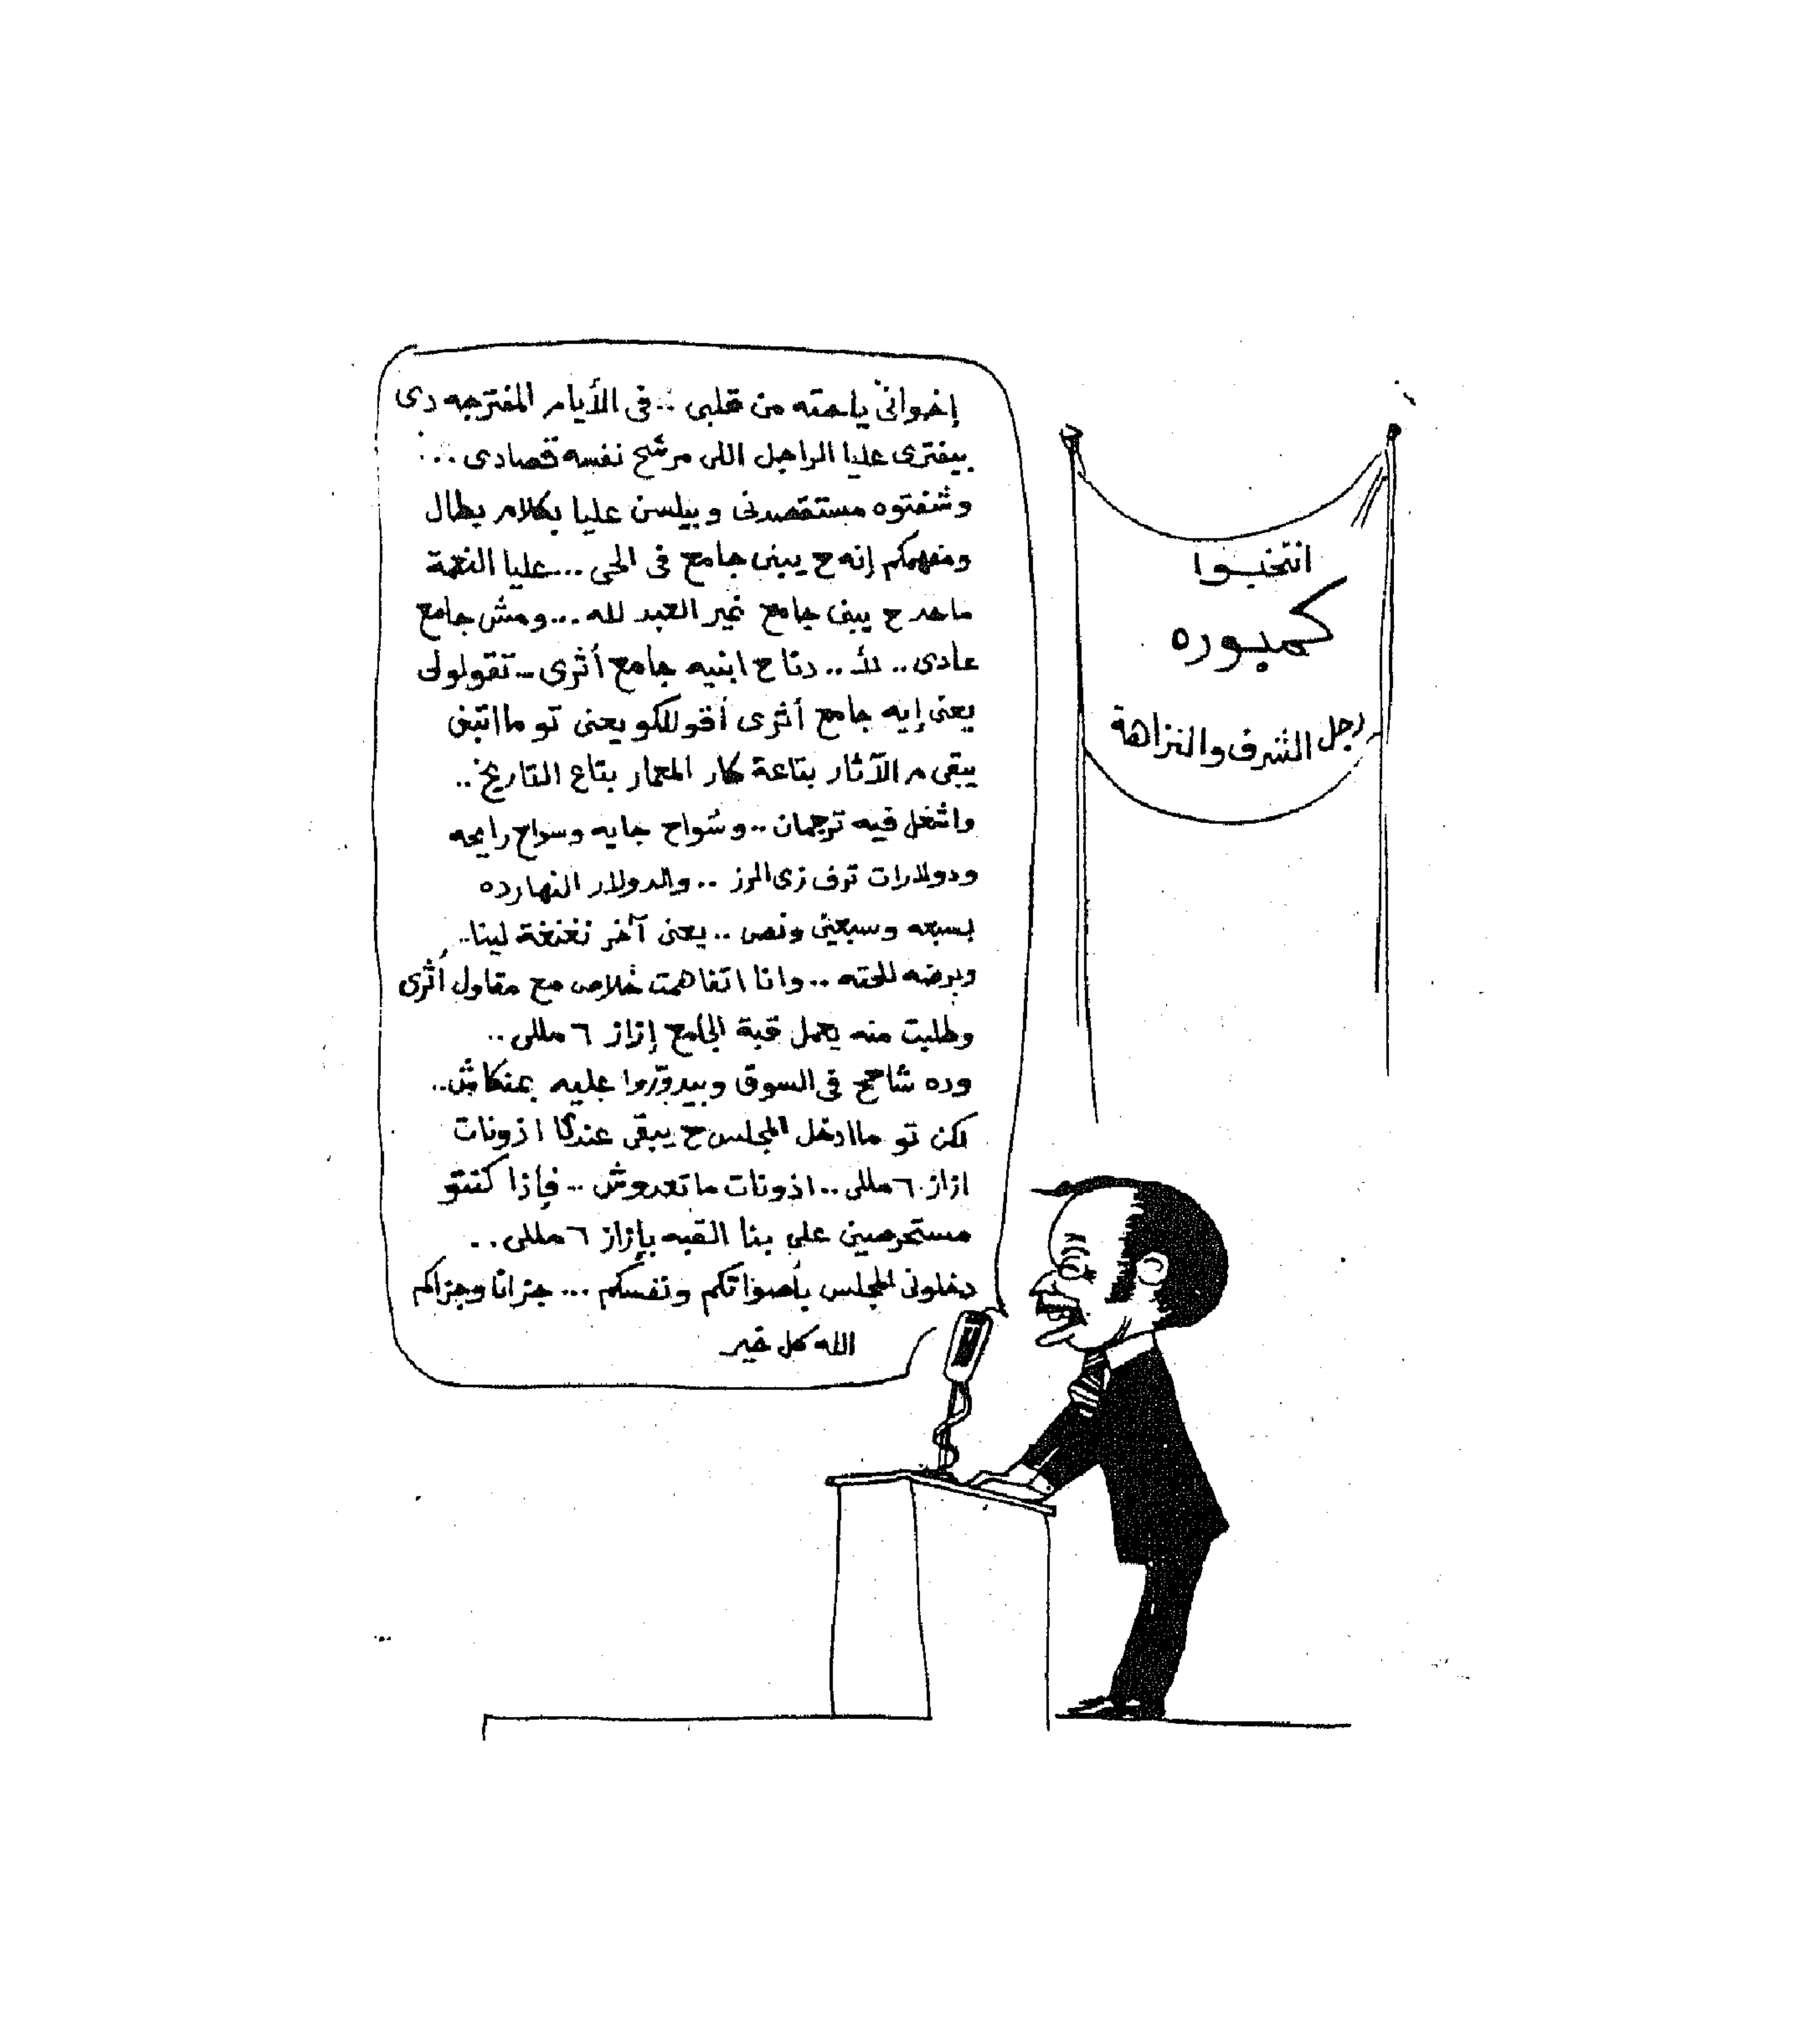 إخوانى ياحته من قلبى .. فى الأيام المفترجه دى
بيفترى عليا الراجل اللى مرشح نفسه قصادى ...
وشفتوه مستقصدنى وبيلسن عليا بكلام بطال
ومفهمكم إنه ح يبنى جامع فى الحى ... عليا النعمة
ماحد ح يبنى جامع غير العبد لله ... ومش جامع
عادى .. لأ .. دنا ح ابنيه جامع أثرى .. تقولولى
يعنى إيه جامع أثرى أقوللكو يعنى تو مااتبنى
يبقى م الآثار بتاعة كار المعمار بتاع التاريخ ..
واشغل فيه ترجمان .. وسواح جايه وسواح رايحه
ودولارات ترف زى الرز .. والدولار النهارده
بسبعه وسبعين ونص .. يعنى آخر نغنغة لينا ..
وبرضه للحته .. وانا اتفاهمت خلاص مع مقاول أثرى
وطلبت منه يعمل قبة الجامع إزاز ٦ مللى ..
وده شاحح فى السوق وبيدوروا عليه بمنكاش ..
لكن تو ماادخل المجلس ح يبقى عندى اذونات
ازاز ٦ مللى .. اذونات ماتعدوش .. فإذا كنتو
مستحرصين على بنا القبه بإزاز ٦ مللى ..
دخلونى المجلس بأصواتكم ونفسكم ... جزانا وجزاكم
الله كل خير
انتخبوا
كمبوره
رجل الشرف والنزاهة